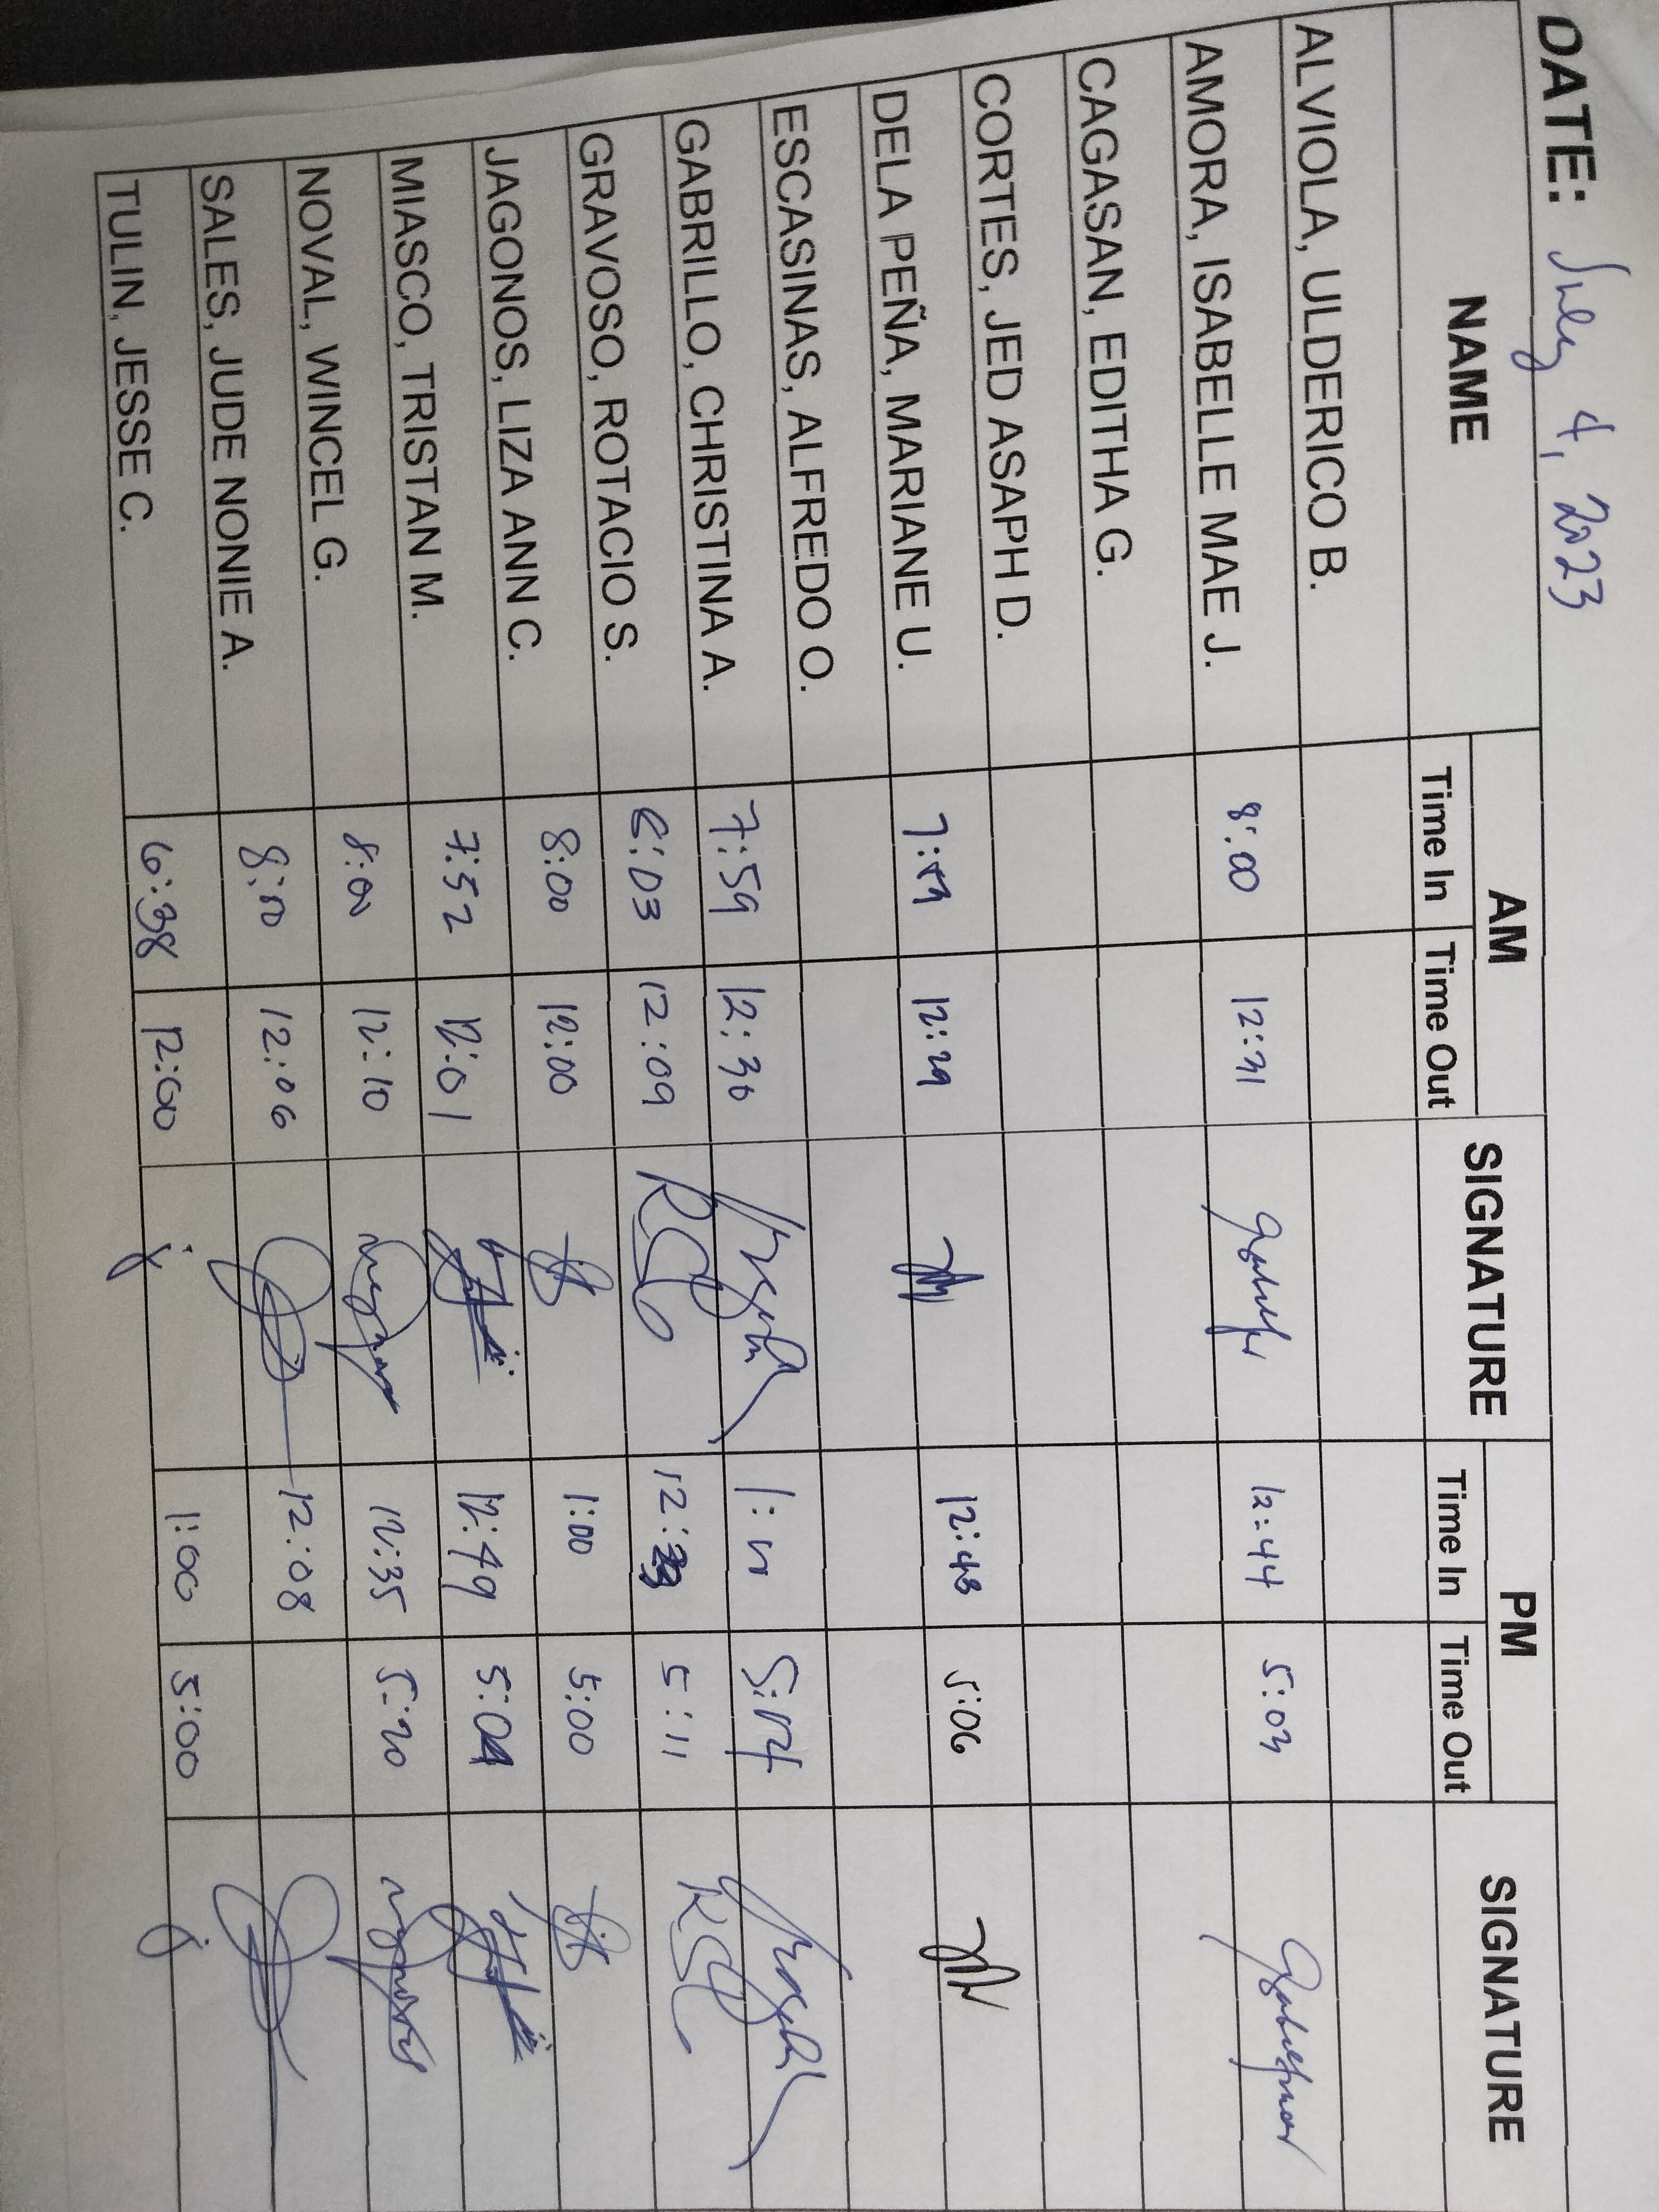 DATE: July 4, 2023
NAME AM SIGNATURE PM SIGNATURE
Time In Time Out Time In Time Out
ALVIOLA, ULDERICO B.
AMORA, ISABELLE MAE J. 8:00 12:31 12:44 5:03
CAGASAN, EDITHA G.
CORTES, JED ASAPH D.
DELA PEÑA, MARIANE U. 12:29 12:43 5:06
ESCASINAS, ALFREDO O.
GABRILLO, CHRISTINA A. 7:59 12:30
GRAVOSO, ROTACIO S. 6:03 12:09 5:11
JAGONOS, LIZA ANN C. 8:00 12:00 1:00 5:00
MIASCO, TRISTAN M. 7:52 12:01 12:49
NOVAL, WINCEL G. 8:00 12:10 12:35 5:20
SALES, JUDE NONIE A. 8:00 12:06 12:08
TULIN, JESSE C. 6:38 12:00 1:00 5:00